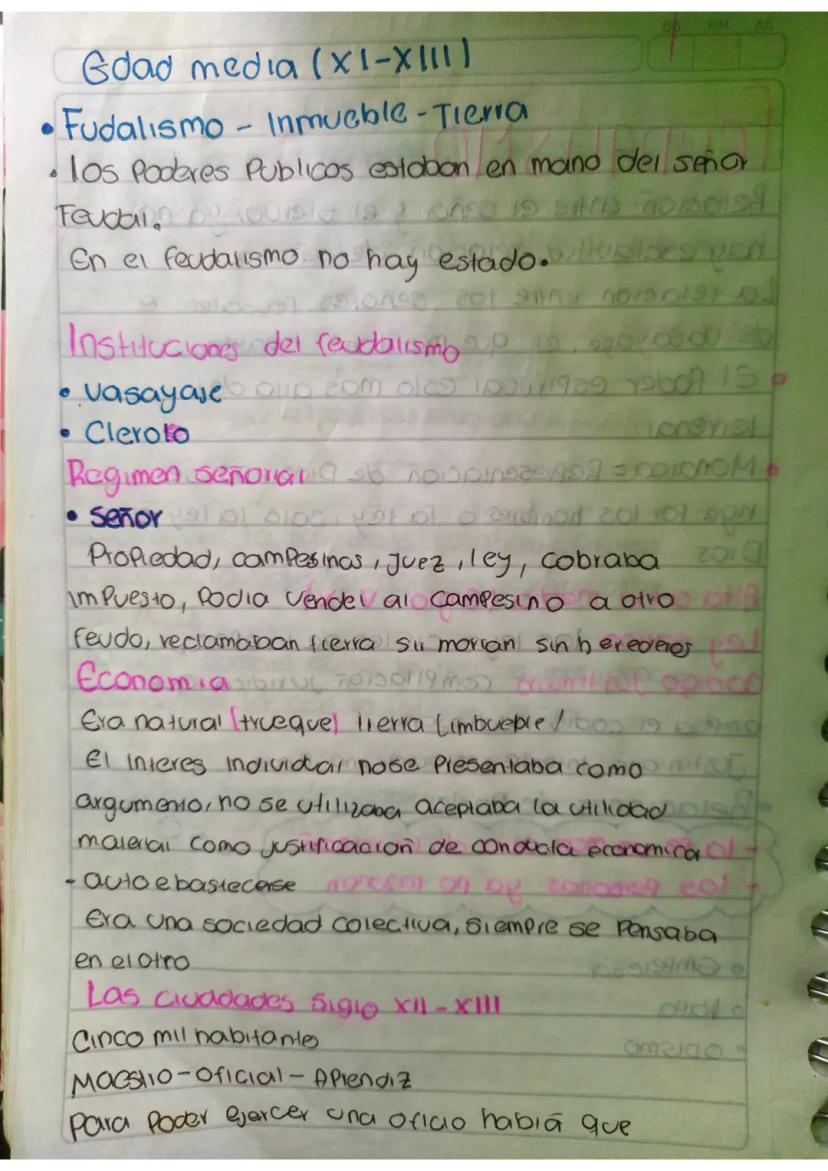 Edad media (XI-XIII)
• Fudalismo - Inmueble - Tierra
• los Poderes Publicos estaban en mano del señor
Feudal.
En el feudalismo no hay estado.
Instituciones del feudalismo
• Vasayaje
• Cleroto
Regimen señorial
• Señor
Propiedad, campesinos, juez, ley, cobraba
impuesto, Podia vender al campesino a otro
feudo, reclamaban tierra si morian sin herederos
Economia
Era natural (trueque) tierra (imbueble)
El interes individual no se Presentaba como
argumento, no se utilizaba aceptaba la utilidad
material como justificación de conducta economica
- autoebastecerse
Era una sociedad colectiva, siempre se Pensaba
en el otro
Las ciudades Siglo XII - XIII
Cinco mil habitante
Maestro - Oficial - Aprendiz
Para Poder ejercer una oficio había que